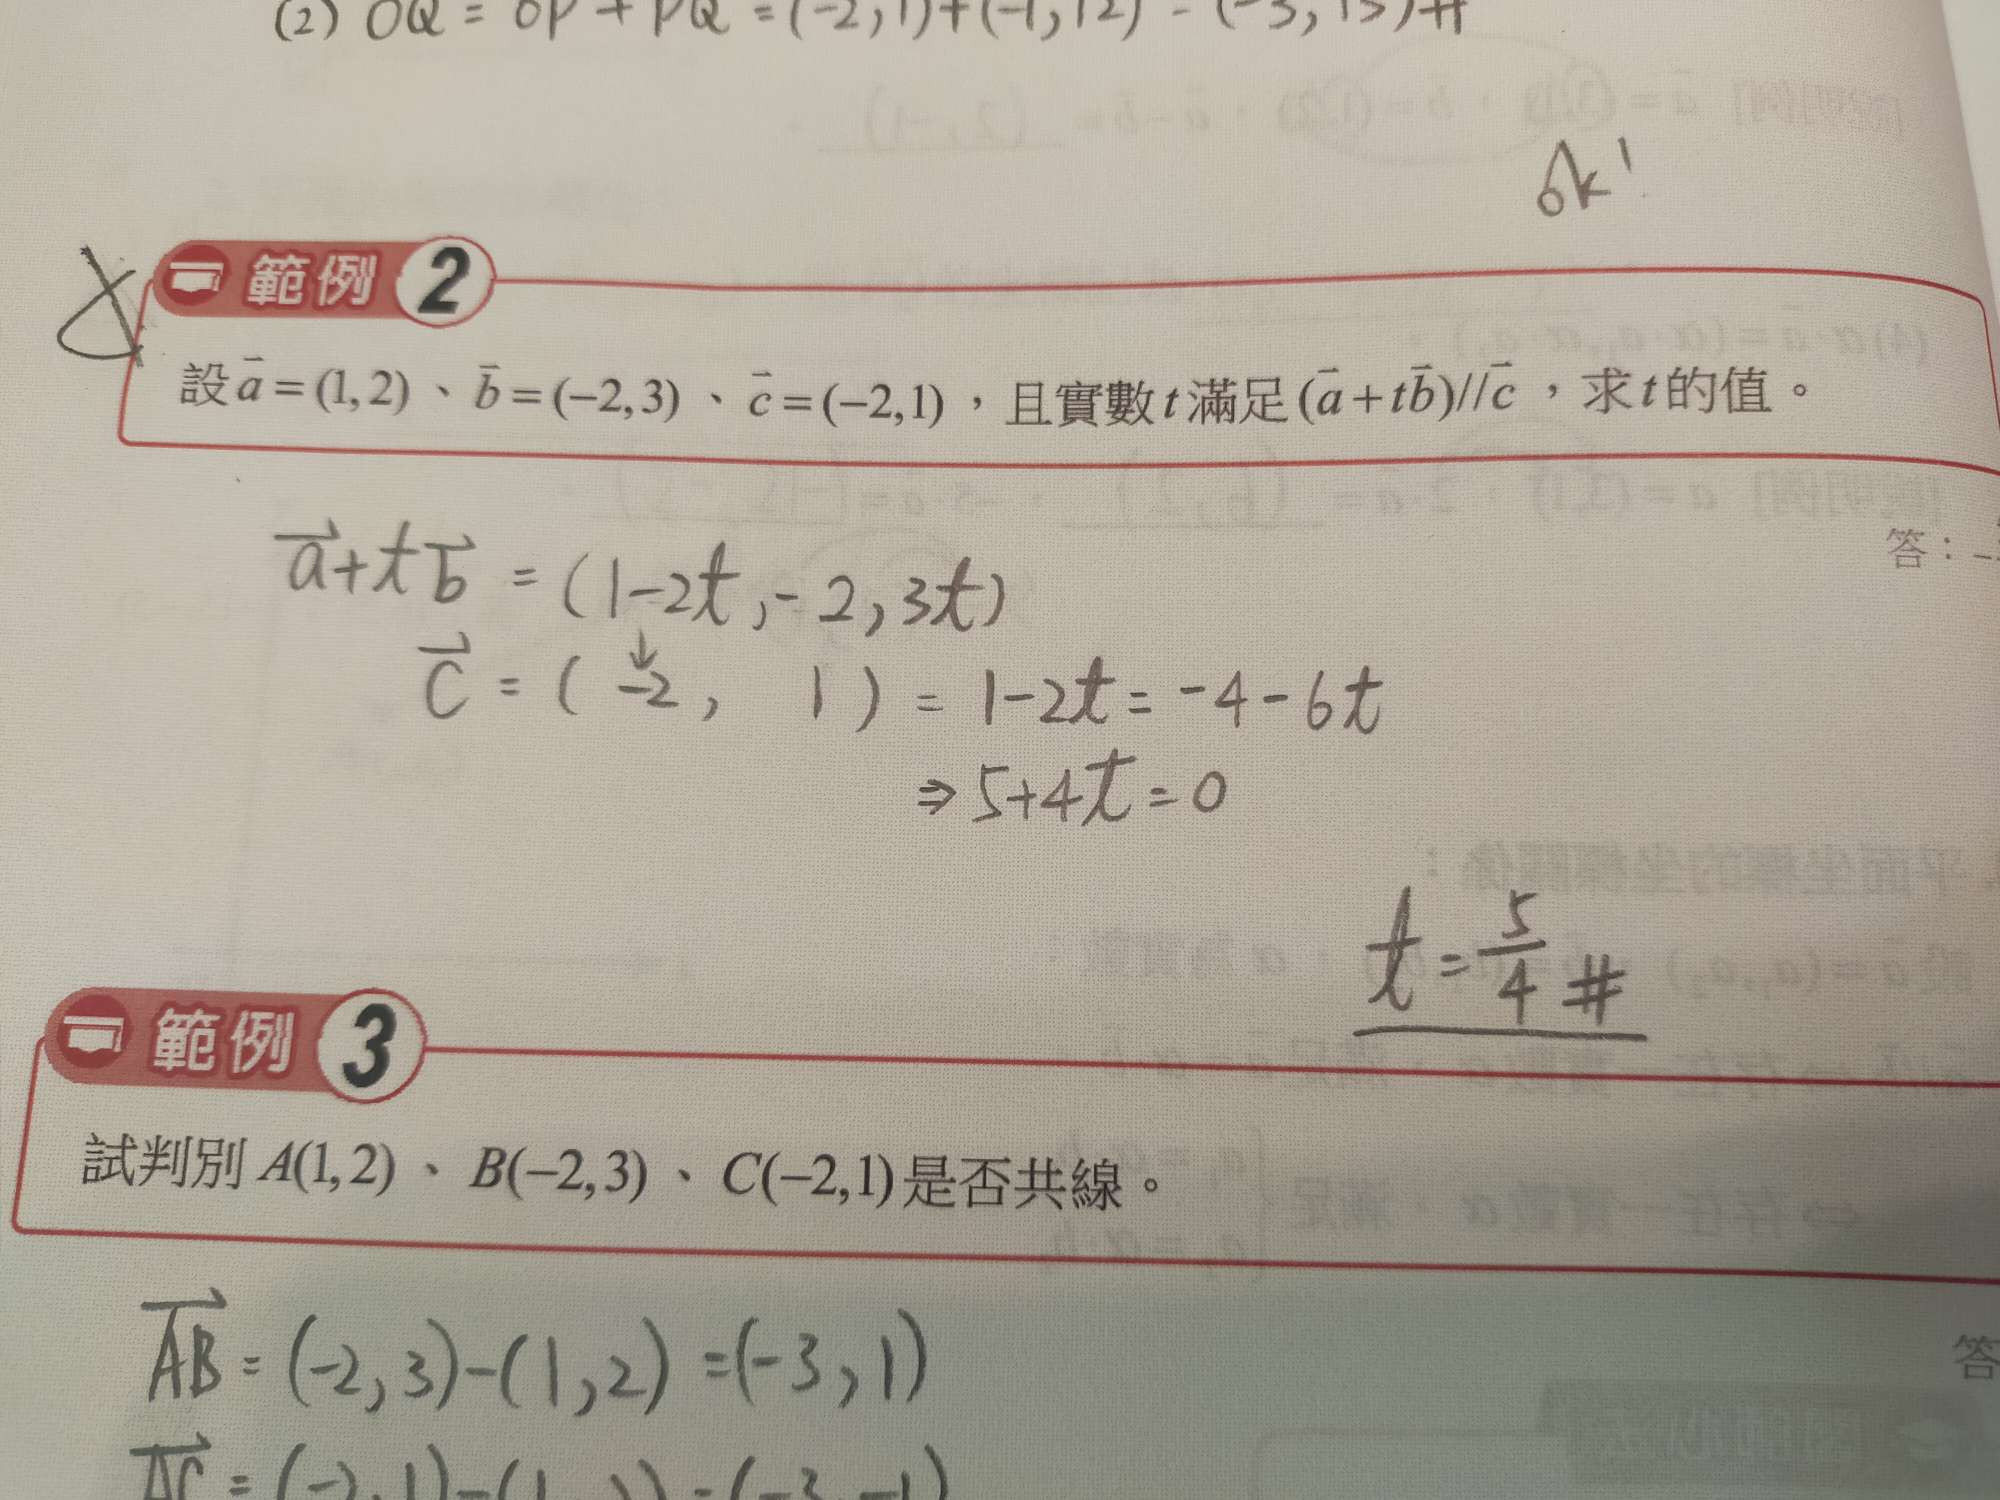 (2) OQ = OP + PQ = (-2,1)+(-1,12) = (-3,13)#
ok'
範例 2
設a=(1,2)、b=(-2,3)、c=(-2,1)，且實數t滿足(a+tb)//c，求t的值。
答：-
a+tb = (1-2t,-2,3t)
c = ( -2, 1 ) = 1-2t = -4-6t
⇒ 5+4t=0
t=5/4 #
範例 3
試判別A(1,2)、B(-2,3)、C(-2,1)是否共線。
答
AB = (-2,3)-(1,2) =(-3,1)
AC = (-2,1)-(1,2) = (-3,-1)